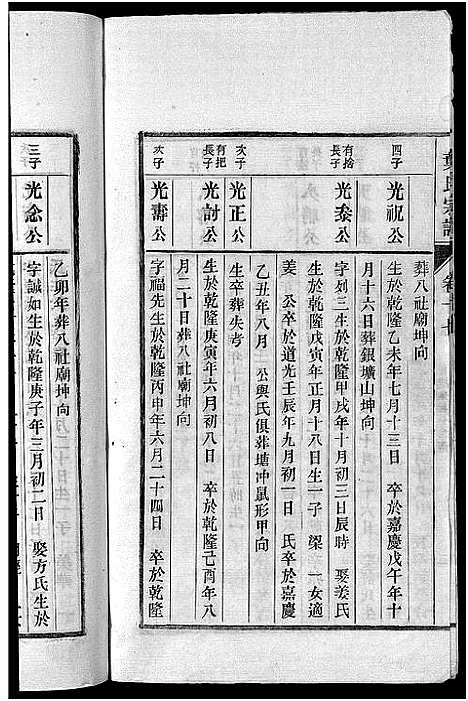 葬八社廟坤向
四子 光祝公 生於乾隆乙未年七月十三日 卒於嘉慶戊午年十
月十六日葬銀壙山坤向
有捨長子 光泰公 字列三生於乾隆甲戌年十月初三日辰時 娶姜氏
生於乾隆戊寅年正月十八日生一子 梁 一女適
姜 公卒於道光壬辰年九月初一日 氏卒於嘉慶
乙丑年八月 公與氏俱葬塘冲鼠形甲向
次子 光正公 生卒葬失考
有把長子 光討公 生於乾隆庚寅年六月初八日 卒於乾隆己酉年八
月二十日葬八社廟坤向
次子 光壽公 字福先生於乾隆丙申年六月二十四日 卒於乾隆
乙卯年葬八社廟坤向
三子 光念公 字誠如生於乾隆庚子年三月初二日 娶方氏生於